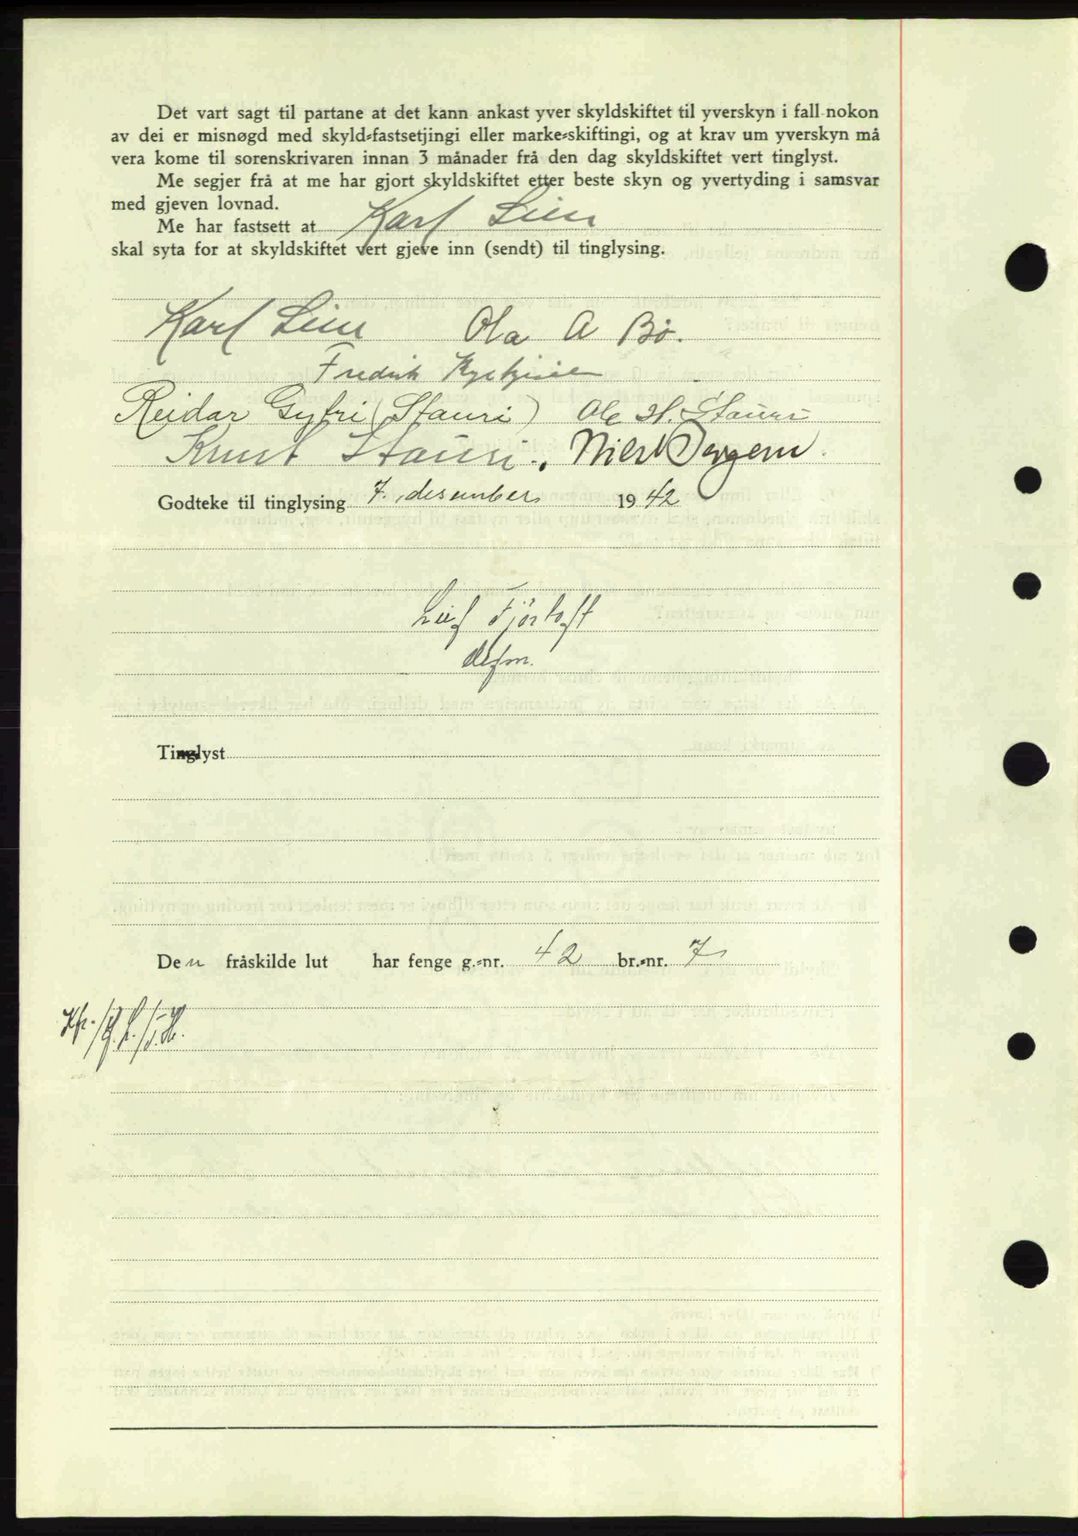 Det vart sagt til partane at det kann ankast yver skyldskiftet til yverskyn i fall nokon
av dei er misnøgd med skyld-fastsetjingi eller marke-skiftingi, og at krav um yverskyn må
vera kome til sorenskrivaren innan 3 månader frå den dag skyldskiftet vert tinglyst.
Me segjer frå at me har gjort skyldskiftet etter beste skyn og yvertyding i samsvar
med gjeven lovnad.
Me har fastsett at Karl Lien
skal syta for at skyldskiftet vert gjeve inn (sendt) til tinglysing.
Karl Lien Ola A Bö.
Fredrik
Reidar Gytri (Stauri) Ole H. Stauri
Knut Stauri. Nils Bergem.
Godteke til tinglysing 7. desember 1942
Leif Fjörtoft
Tinglyst
Den fråskilde lut har fenge g.-nr. 42 br.-nr. 7